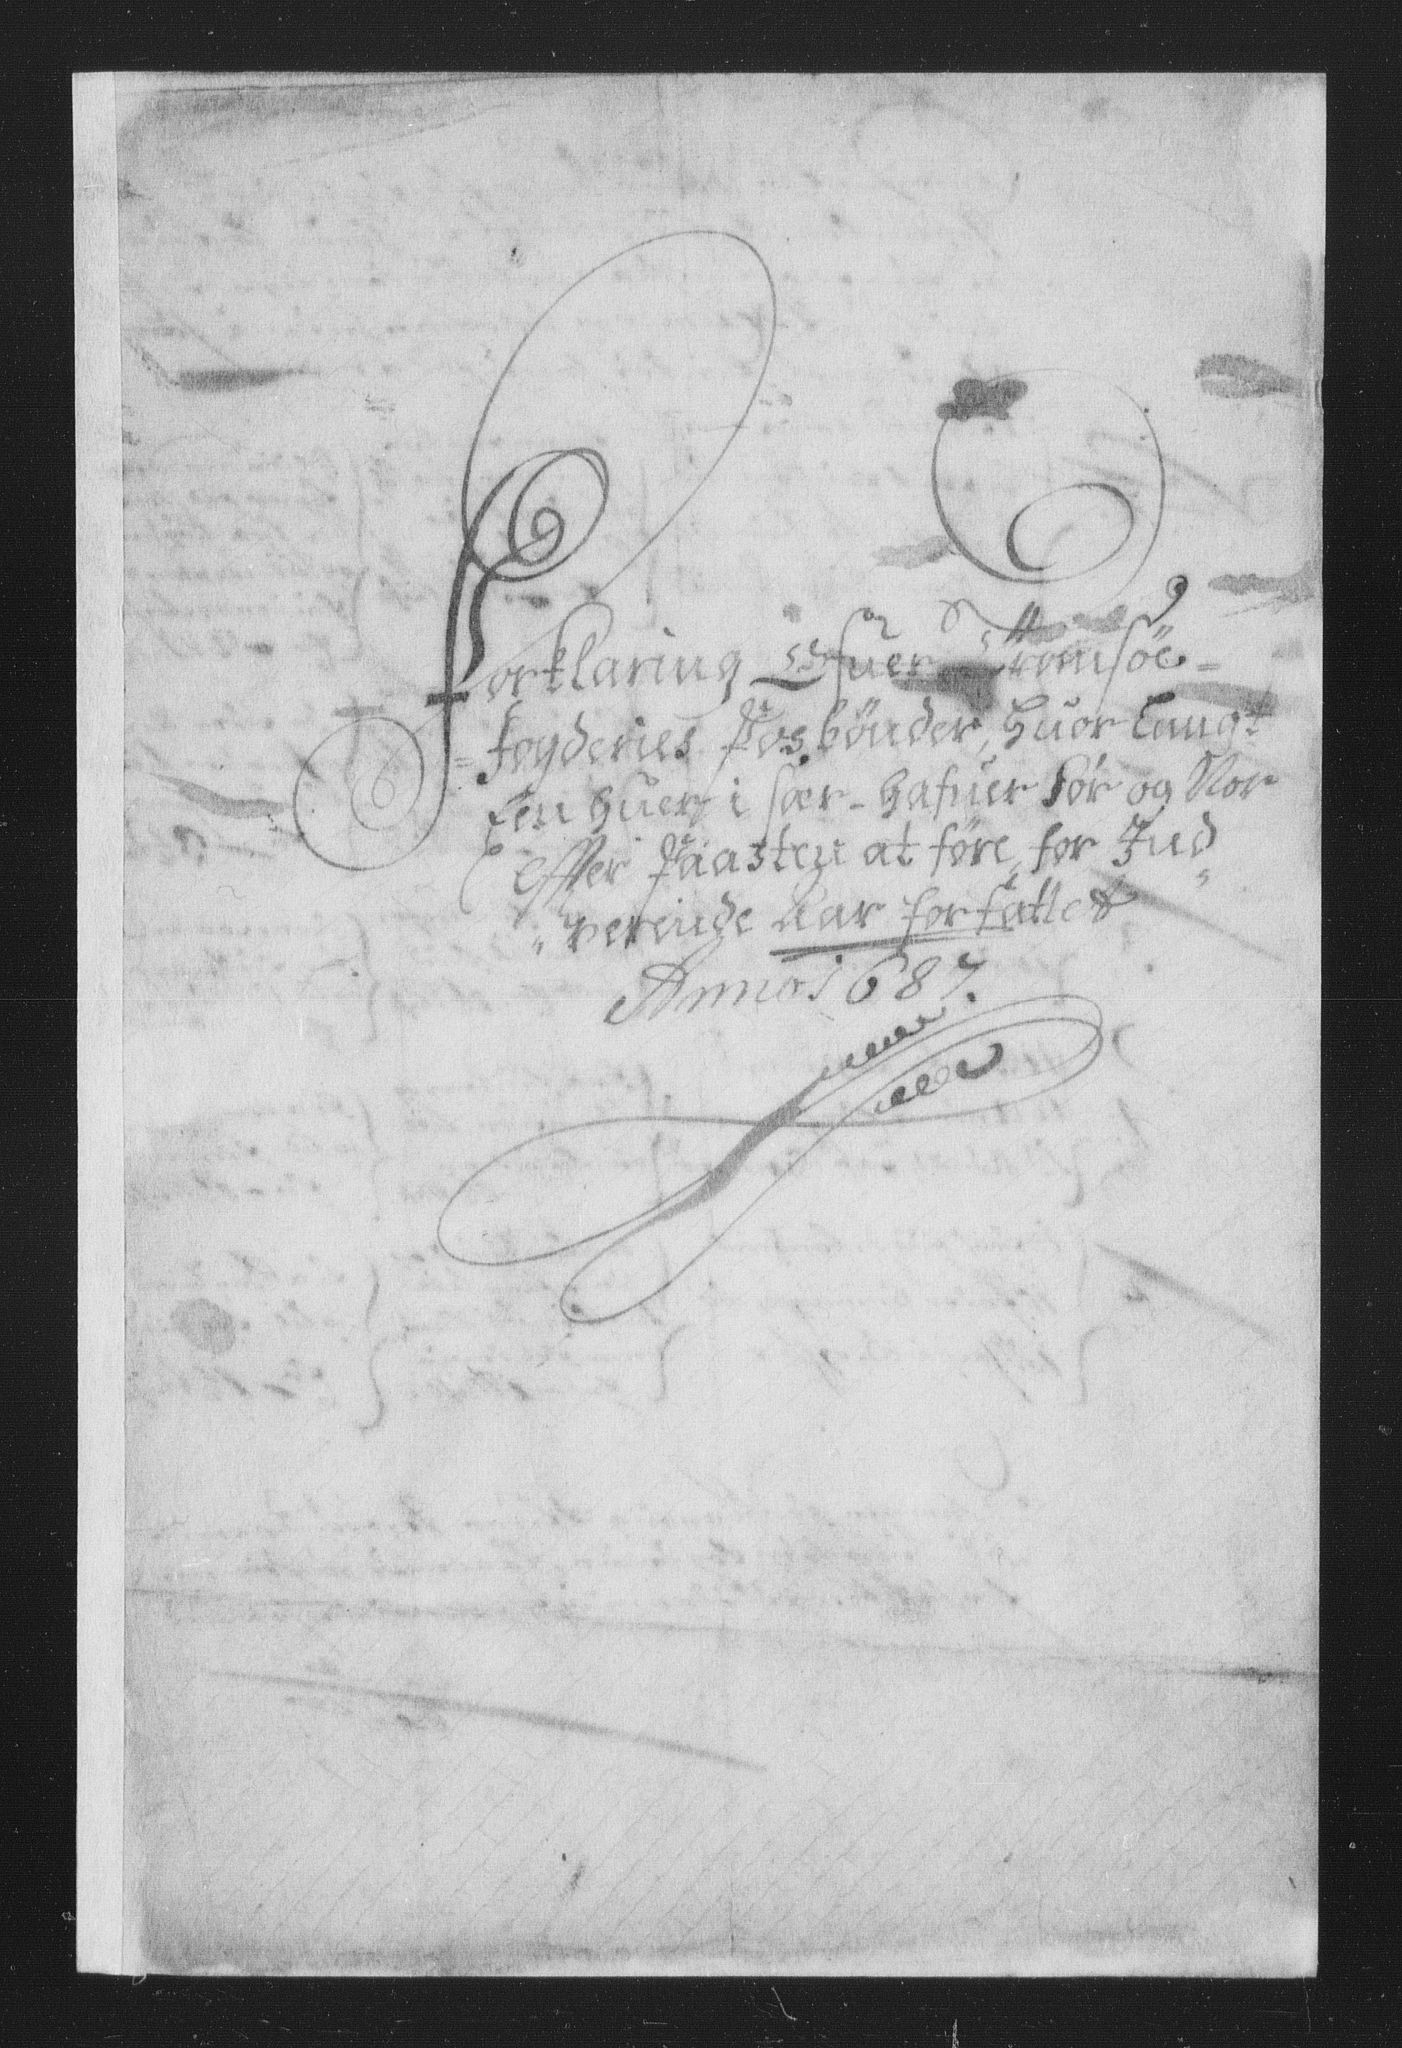 Forklaring Ofuer Tromsöe=
=fogderies Posbönder, huor langt
Een huer i sær hafuer Sör og Nor
effter Paasten at före, for Ind„
„werende Aar forfattet
Anno 1687.